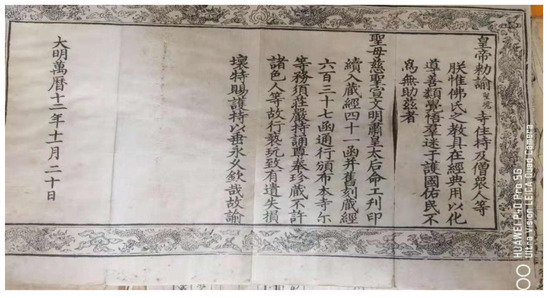 皇帝勅諭 寺住持及僧衆人等
朕惟佛氏之教具在經典用以化
導善類覺悟羣迷于護國佑民不
爲無助茲者
聖母慈聖宣文明肅皇太后命工刊印
續入藏經四十一函并舊刻藏經
六百三十七函通行頒布本寺尔
等務須莊嚴持誦尊奉珍藏不許
諸色人等故行褻玩致有遺失損
壞特賜護持以垂永久欽哉故諭
大明萬曆十二年十一月二十日
HUAWEI P40 Pro 5G
Ultra Vision LEICA Quad Camera